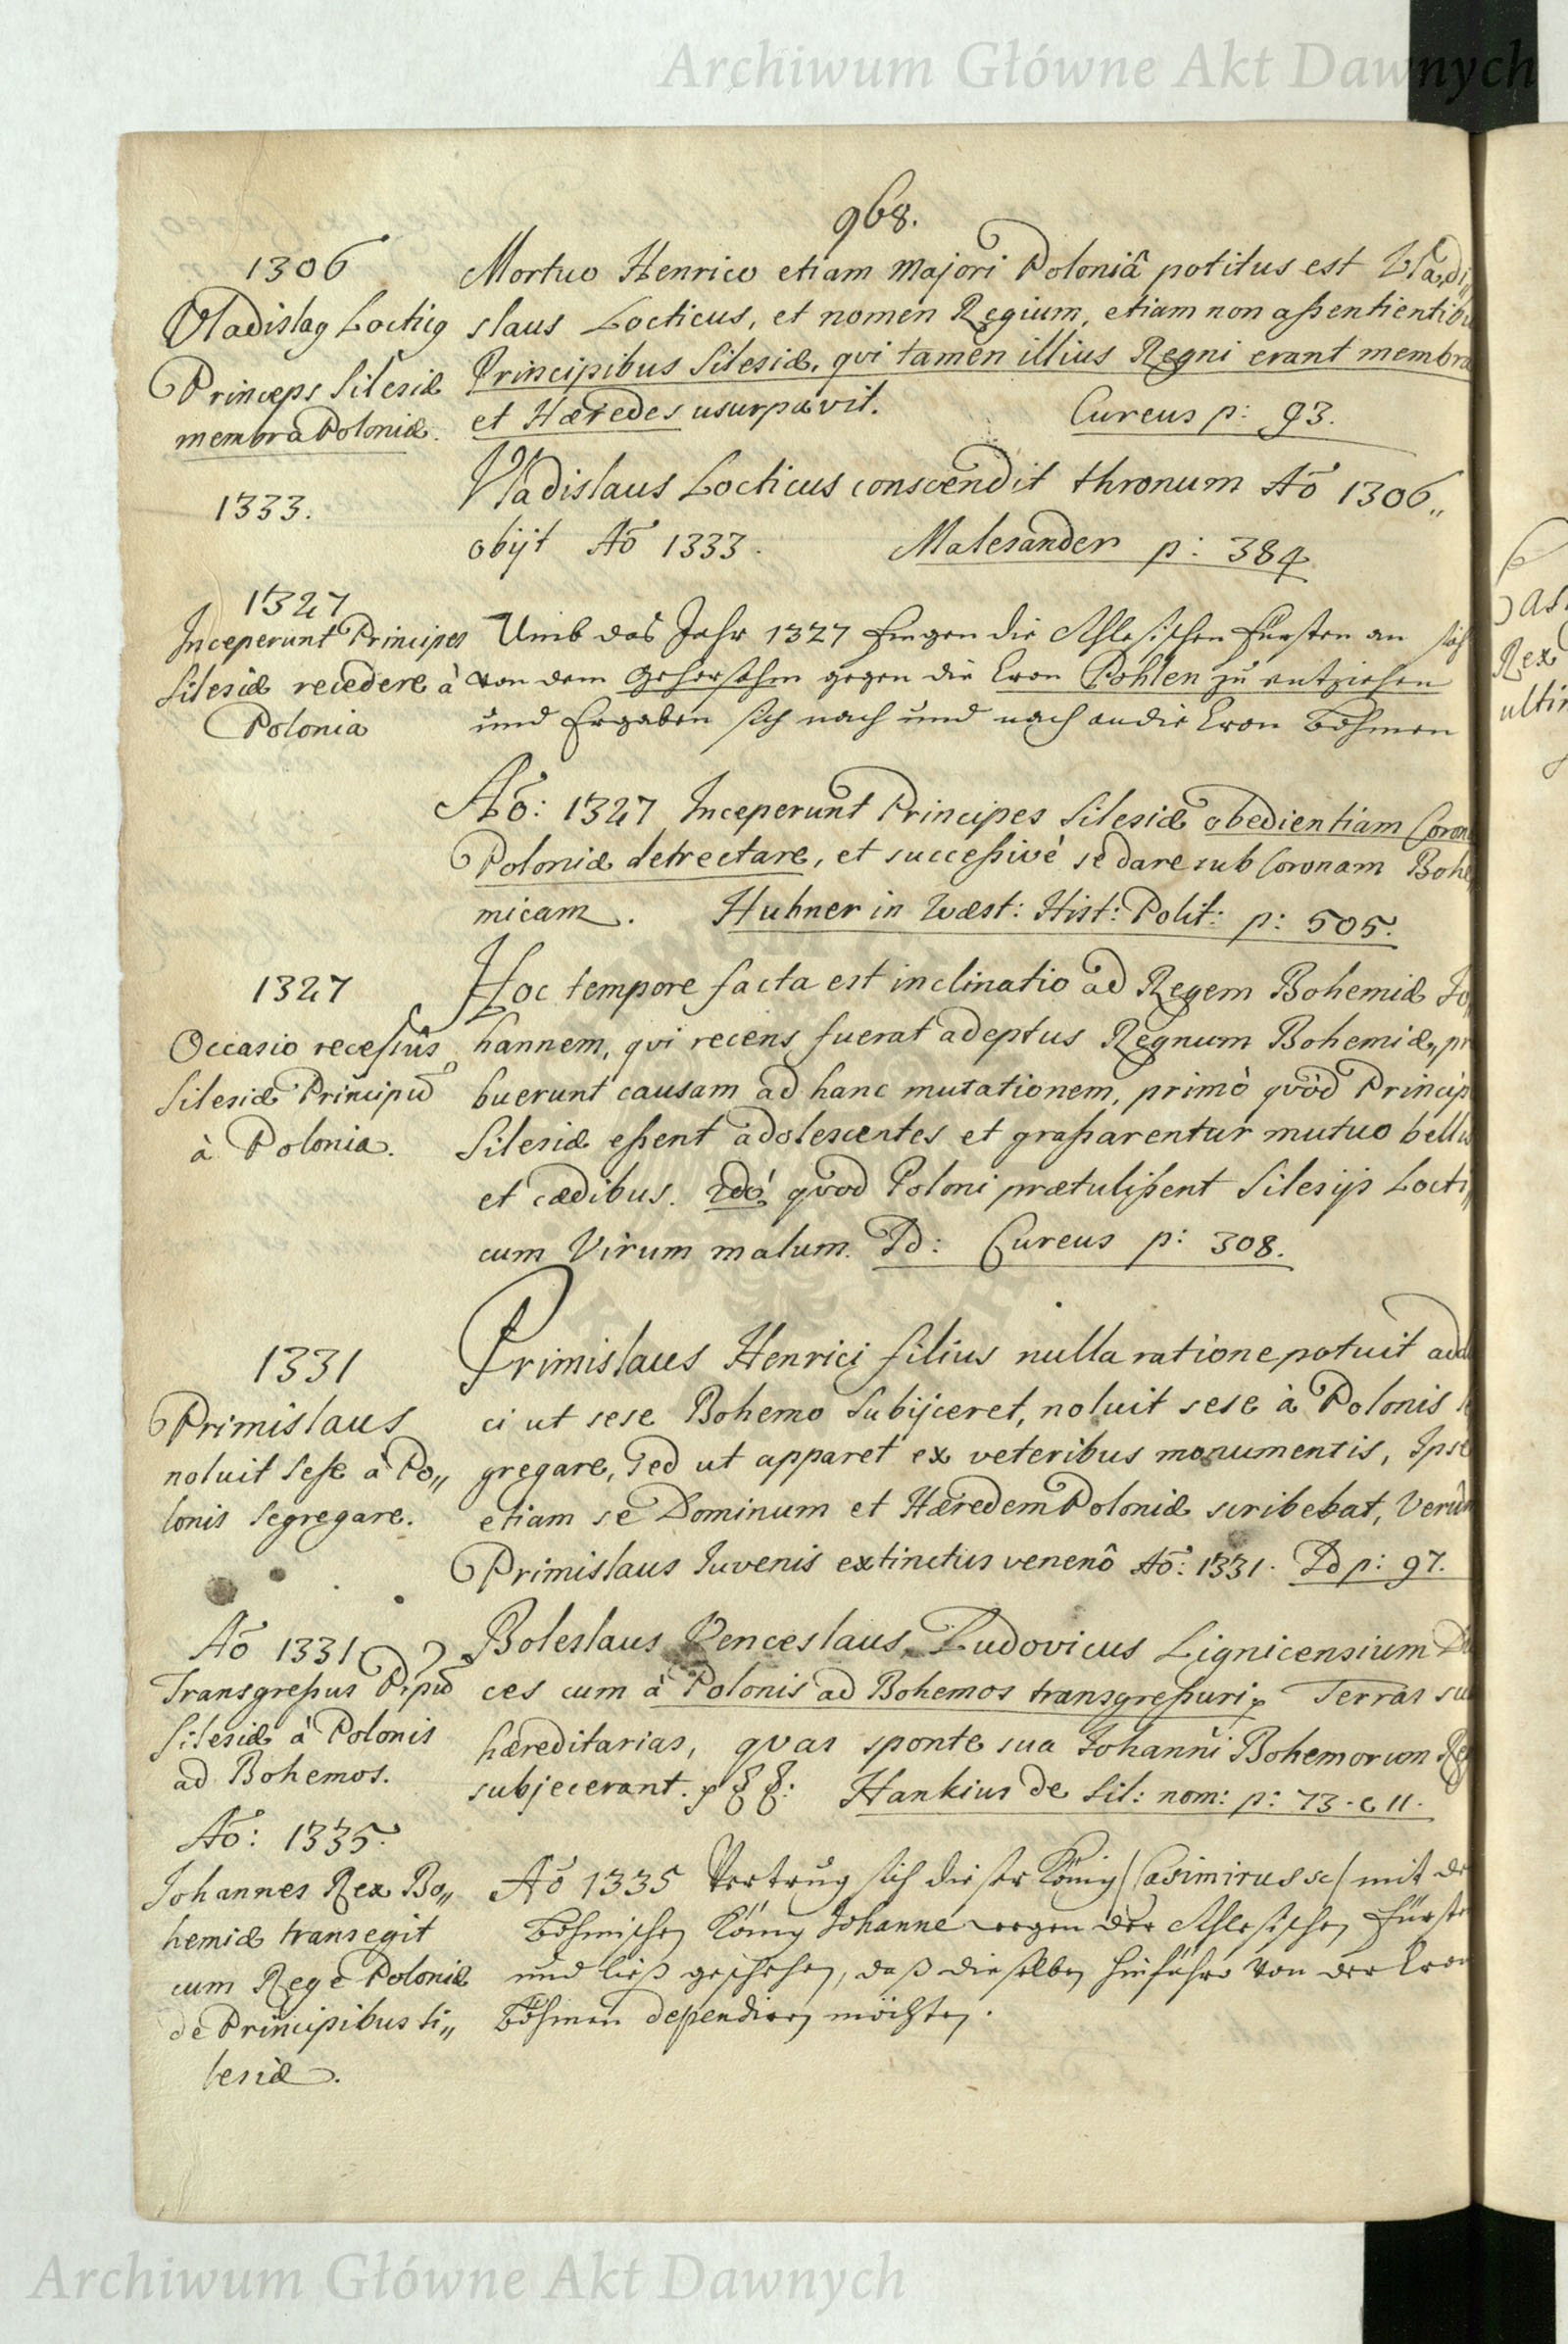 Archiwum Główne Akt Dawnych
968.
1306
Vladislaꝯ Locticꝯ
Princeps Silesiæ
membra Poloniæ.
Mortuo Henrico etiam Majori Poloniâ potitus est Vladi„
slaus Locticus, et nomen Regium, etiam non aßentientibu
Principibus Silesiæ, qvi tamen illius Regni erant membra
et Hæredes usurpavit. Cureus p: 93.
1333.
Vladislaus Locticus conscendit thronum Aõ 1306„
obijt Aõ 1333. Malesander p: 384
1327
Inceperunt Principes
Silesiæ recedere à
Polonia
Umb das Jahr 1327 fingen die Schlesischen Fürsten an sich
von dem Gehorsahm gegen die Cron Pohlen zu entziehen
und Ergaben sich nach und nach an die Cron Böhmen
Aõ: 1327 Inceperunt Principes Silesiæ obedientiam Coron
Poloniæ detrectare, et succeßivè se dare sub Coronam Bohe
micam. Hubner in Quæst: Hist: Polit: p: 505.
1327
Occasio receßûs
Silesiæ Principũ
à Polonia.
Hoc tempore facta est inclinatio ad Regem Bohemiæ Jo
hannem, qvi recens fuerat adeptus Regnum Bohemiæ, pr
buerunt causam ad hanc mutationem, primò qvòd Princip
Silesiæ eßent adolescentes et graßarentur mutuo bellis
et cædibus. 2dò qvod Poloni prætulißent Silesijs Locti„
cum Virum malum. Id: Cureus p: 308.
1331
Primislaus
noluit sese à Po„
lonis segregare.
Primislaus Henrici filius nulla ratione potuit addu
ci ut sese Bohemo subijceret, noluit sese à Polonis se
gregare, sed ut apparet ex veteribus monumentis, Ipse
etiam se Dominum et Hæredem Poloniæ scribebat, Verùm
Primislaus Juvenis extinctus venenô Aõ: 1331. Id p: 97.
Aõ 1331
Transgreßus Prpũ
Silesiæ à Polonis
ad Bohemos.
Boleslaus Venceslaus, Ludovicus Lignicensium Du
ces cum à Polonis ad Bohemos transgreßuri Terras sua
hæreditarias, qvas sponte sua Johanni Bohemorum Reg
subjecerant. Hankius de Sil: nom: p: 73. c 11.
Aõ: 1335.
Johannes Rex Bo„
hemiæ transegit
cum Rege Poloniæ
de Principibus Si„
lesiæ.
Aõ 1335 Vertrug sich dieser König /Casimirus sc/ mit de
Böhmischen König Johanne wegen der Schlesischen Fürste
und ließ geschehen, daß dieselben hinführo Von der Cron
Böhmen dependiren möchten.
as
Rex
ultim
Archiwum Główne Akt Dawnych